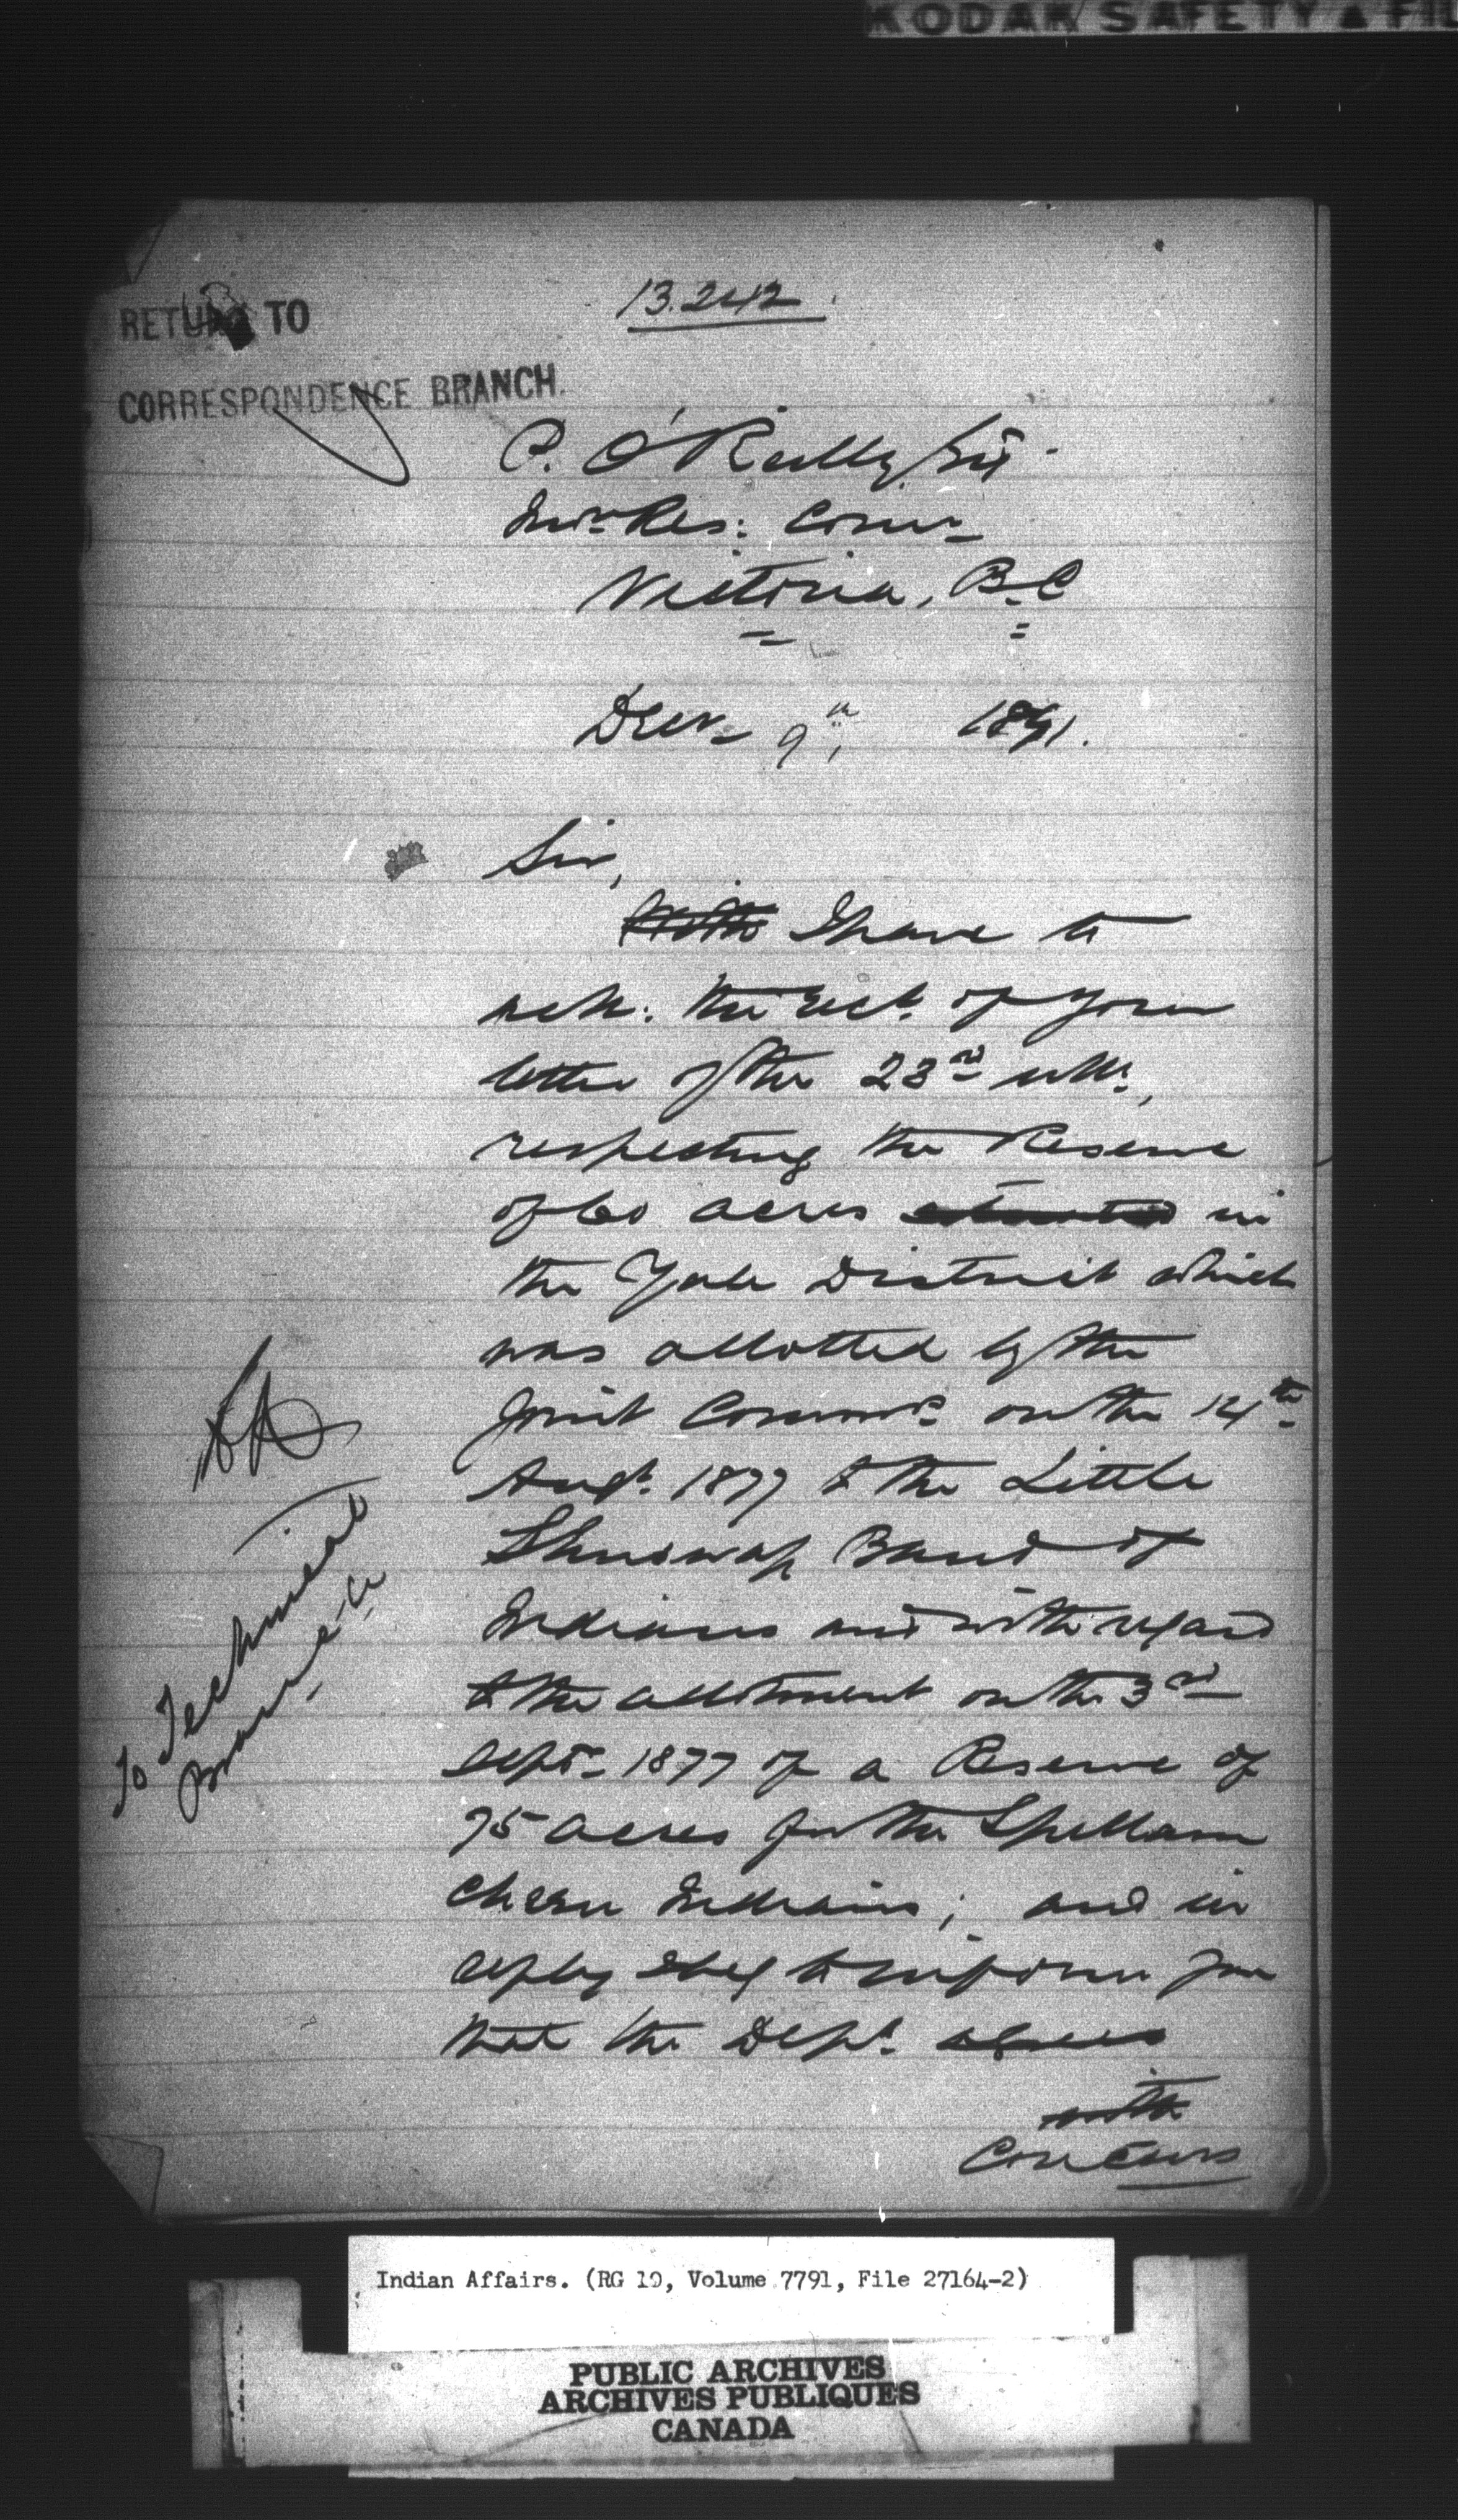 KODAK SAFETY ▲ FIL
RETURN TO
CORRESPONDENCE BRANCH.
13.242.
P. O'Reilly, Esq.
Indn Res: Comr
Victoria, B.C
Decr 9th, 1891.
Sir,
With I have to
ack: the rect. of your
letter of the 23rd ulto.,
respecting the Reserve
of 60 acres situated in
the Yale District which
was allotted by the
Joint Commrs. on the 14th
Augt. 1877 to the Little
Shuswap Band of
Indians and with regard
to the allotment on the 3rd
Septr 1877 of a Reserve of
75 acres for the Spellam
cheen Indians; and in
reply I beg to inform you
that the Dept. agrees
with
Concurs
To Technical
Branch
Indian Affairs. (RG 10, Volume 7791, File 27164-2)
PUBLIC ARCHIVES
ARCHIVES PUBLIQUES
CANADA